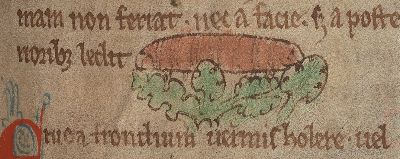 mam non feriat · nec a facie · sꝫ a poste
rioribꝫ ledit
Eruca frondium uermis holere · uel